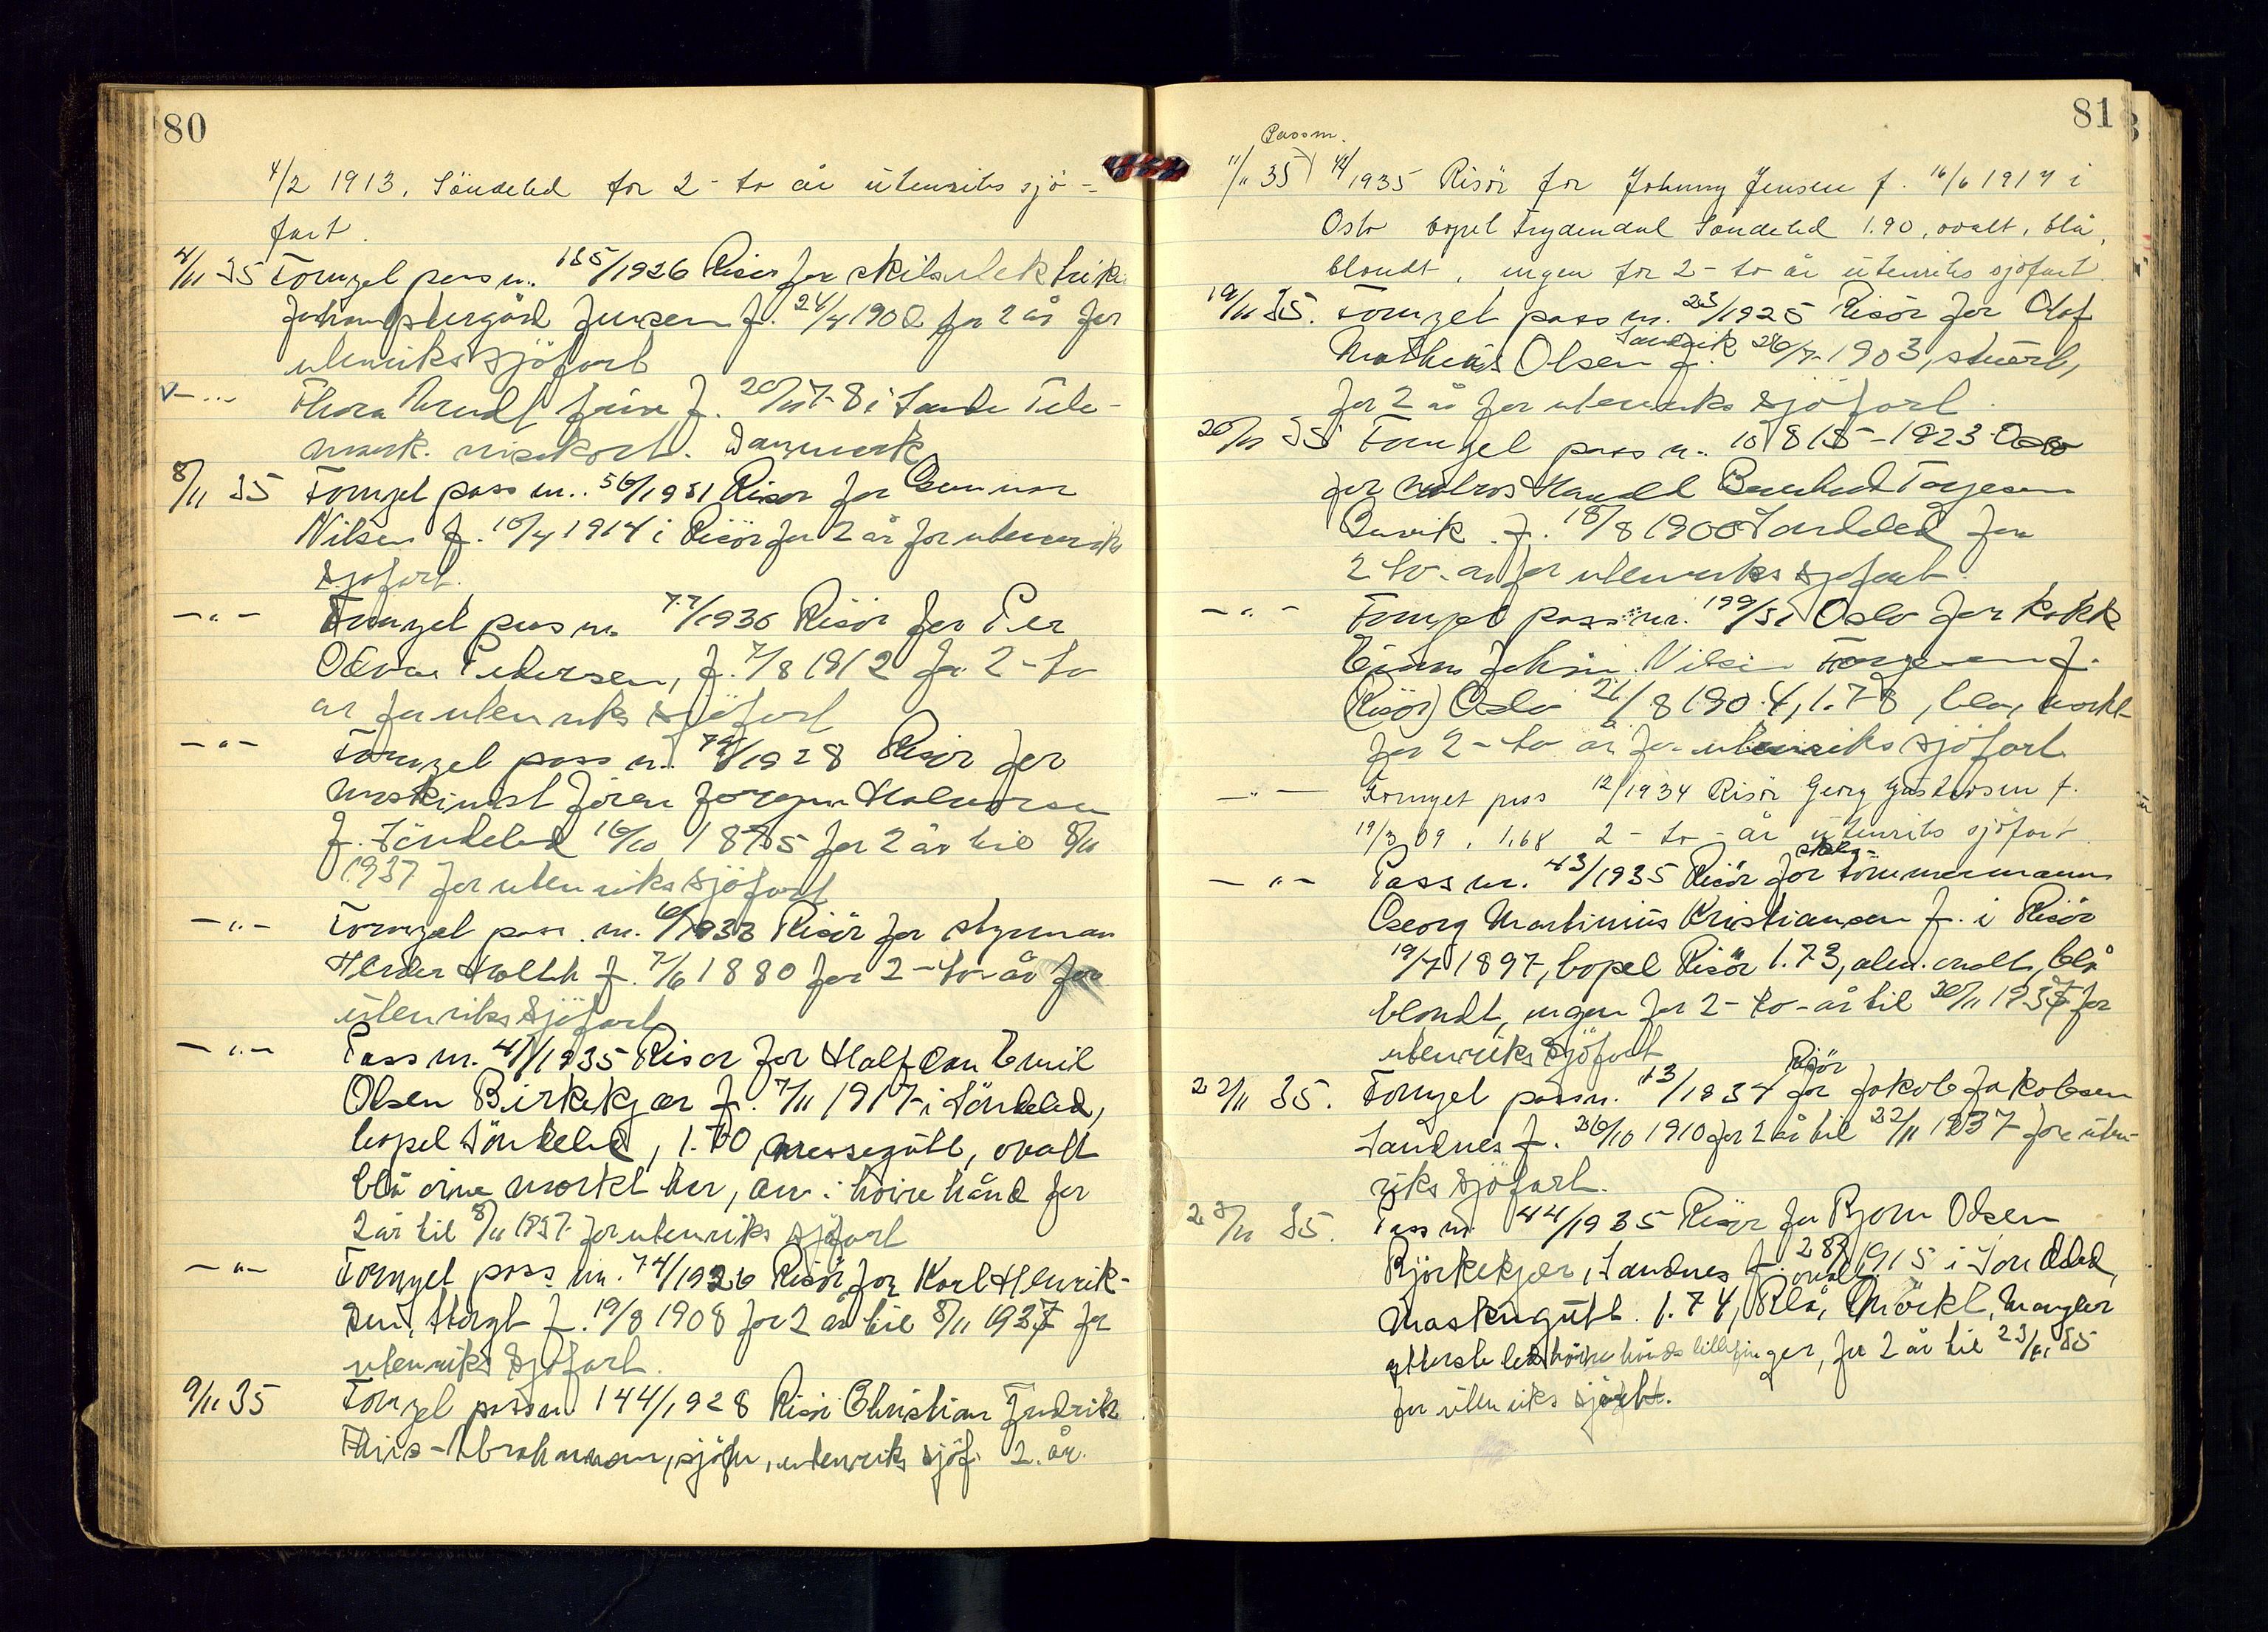 80
4/2 1913, Söndeled for 2-to år utenriks sjö-
fart.
4/11 35 Fornyet pass nr. 155/1926 Risör for skibselektrik.
Johan Östergård Jensen f. 24/4 1902 for 2 år for
utenriks sjöfart
Thora f. 20/11 78 i Sande Tele-
mark. reisekort. Danmark
8/11 35 Fornyet pass nr. 56/1931 Risör for Gunnar
Nilsen f. 10/4 1914 i Risör for 2 år for utenriks
sjöfart.
-"- Fornyet pass nr. 77/1930 Risör for Per
Pedersen, f. 7/8 1912 for 2-to
år for utenriks sjöfart
-"- Fornyet pass nr. 74/1928 Risör for
maskinist Jören Jörgen Halvorsen
f. Söndeled 16/10 1875 for 2 år til 8/11
1937 for utenriks sjöfart
-"- Fornyet pass nr. 6/1933 Risör for styrman
f. 7/6 1880 for 2-to-år for
utenriks sjöfart
-"- Pass nr. 41/1935 Risör for Halfdan Emil
Olsen Birkekjær f. 7/11 1917 i Söndeled,
bopel Söndeled, 1.70, messegutt, ovalt
blå öine mörkt hår, arr i höire hånd for
2 år til 8/11 1937 for utenriks sjöfart
-"- Fornyet pass nr. 74/1926 Risör for Karl Henrik-
sen, f. 19/8 1908 for 2 år til 8/11 1937 for
utenriks sjöfart.
9/11 35 Fornyet pass nr 144/1928 Risör Christian Fredrik
Thiis-Abrahamsen, sjöfm, utenriks sjöf. 2. år.
81
Passnr.
11/11 35 42/1935 Risör for Johnny Jensen f. 16/6 1917 i
Oslo bopel Frydendal Söndeled 1.90, ovalt, blå,
blondt, ingen for 2-to år utenriks sjöfart
19/11 35. Fornyet pass nr. 23/1925 Risör for Olaf
Mathias Olsen Sandvik f. 26/7 1903, stuert,
for 2 år for utenriks sjöfart.
20/11 35 Fornyet pass nr. 10815-1923 Oslo
for matros Harald Bernhard Torjesen
f. 18/8 1900 Söndeled for
2 to-år for utenriks sjöfart.
-"- Fornyet pass nr. 199/31 Oslo for kokk
Einar Johan Nilsen f.
(Risör) Oslo 21/8 1904, 1.78, blå, mörkt
for 2-to år for utenriks sjöfart
-"- Fornyet pass 12/1934 Risör Georg Gustavsen f.
19/3 09, 1,68 2-to-år utenriks sjöfart
-"- Pass nr. 43/1935 Risör for skibs-tömmermann
Georg Martinius Kristiansen f. i Risör
19/7 1897, bopel Risör 1.73, alm. ovalt, blå
blondt, ingen for 2-to-år til 20/11 1937 for
utenriks sjöfart
22/11 35. Fornyet passnr. 13/1934 Risör for Jakob Jakobsen
Sandnes f. 26/10 1910 for 2 år til 22/11 1937 for uten-
riks sjöfart.
23/11 35. Pass nr 44/1935 Risör for Bjorn Olsen
Björkekjær, Sandnes f. 1915 i Söndeled,
Maskingutt. 1.74, ovalt, Blå, Mörkt, Mangler
ytterste ledd höire hånds lillefinger, for 2 år til 23/11 35
for utenriks sjöfart.